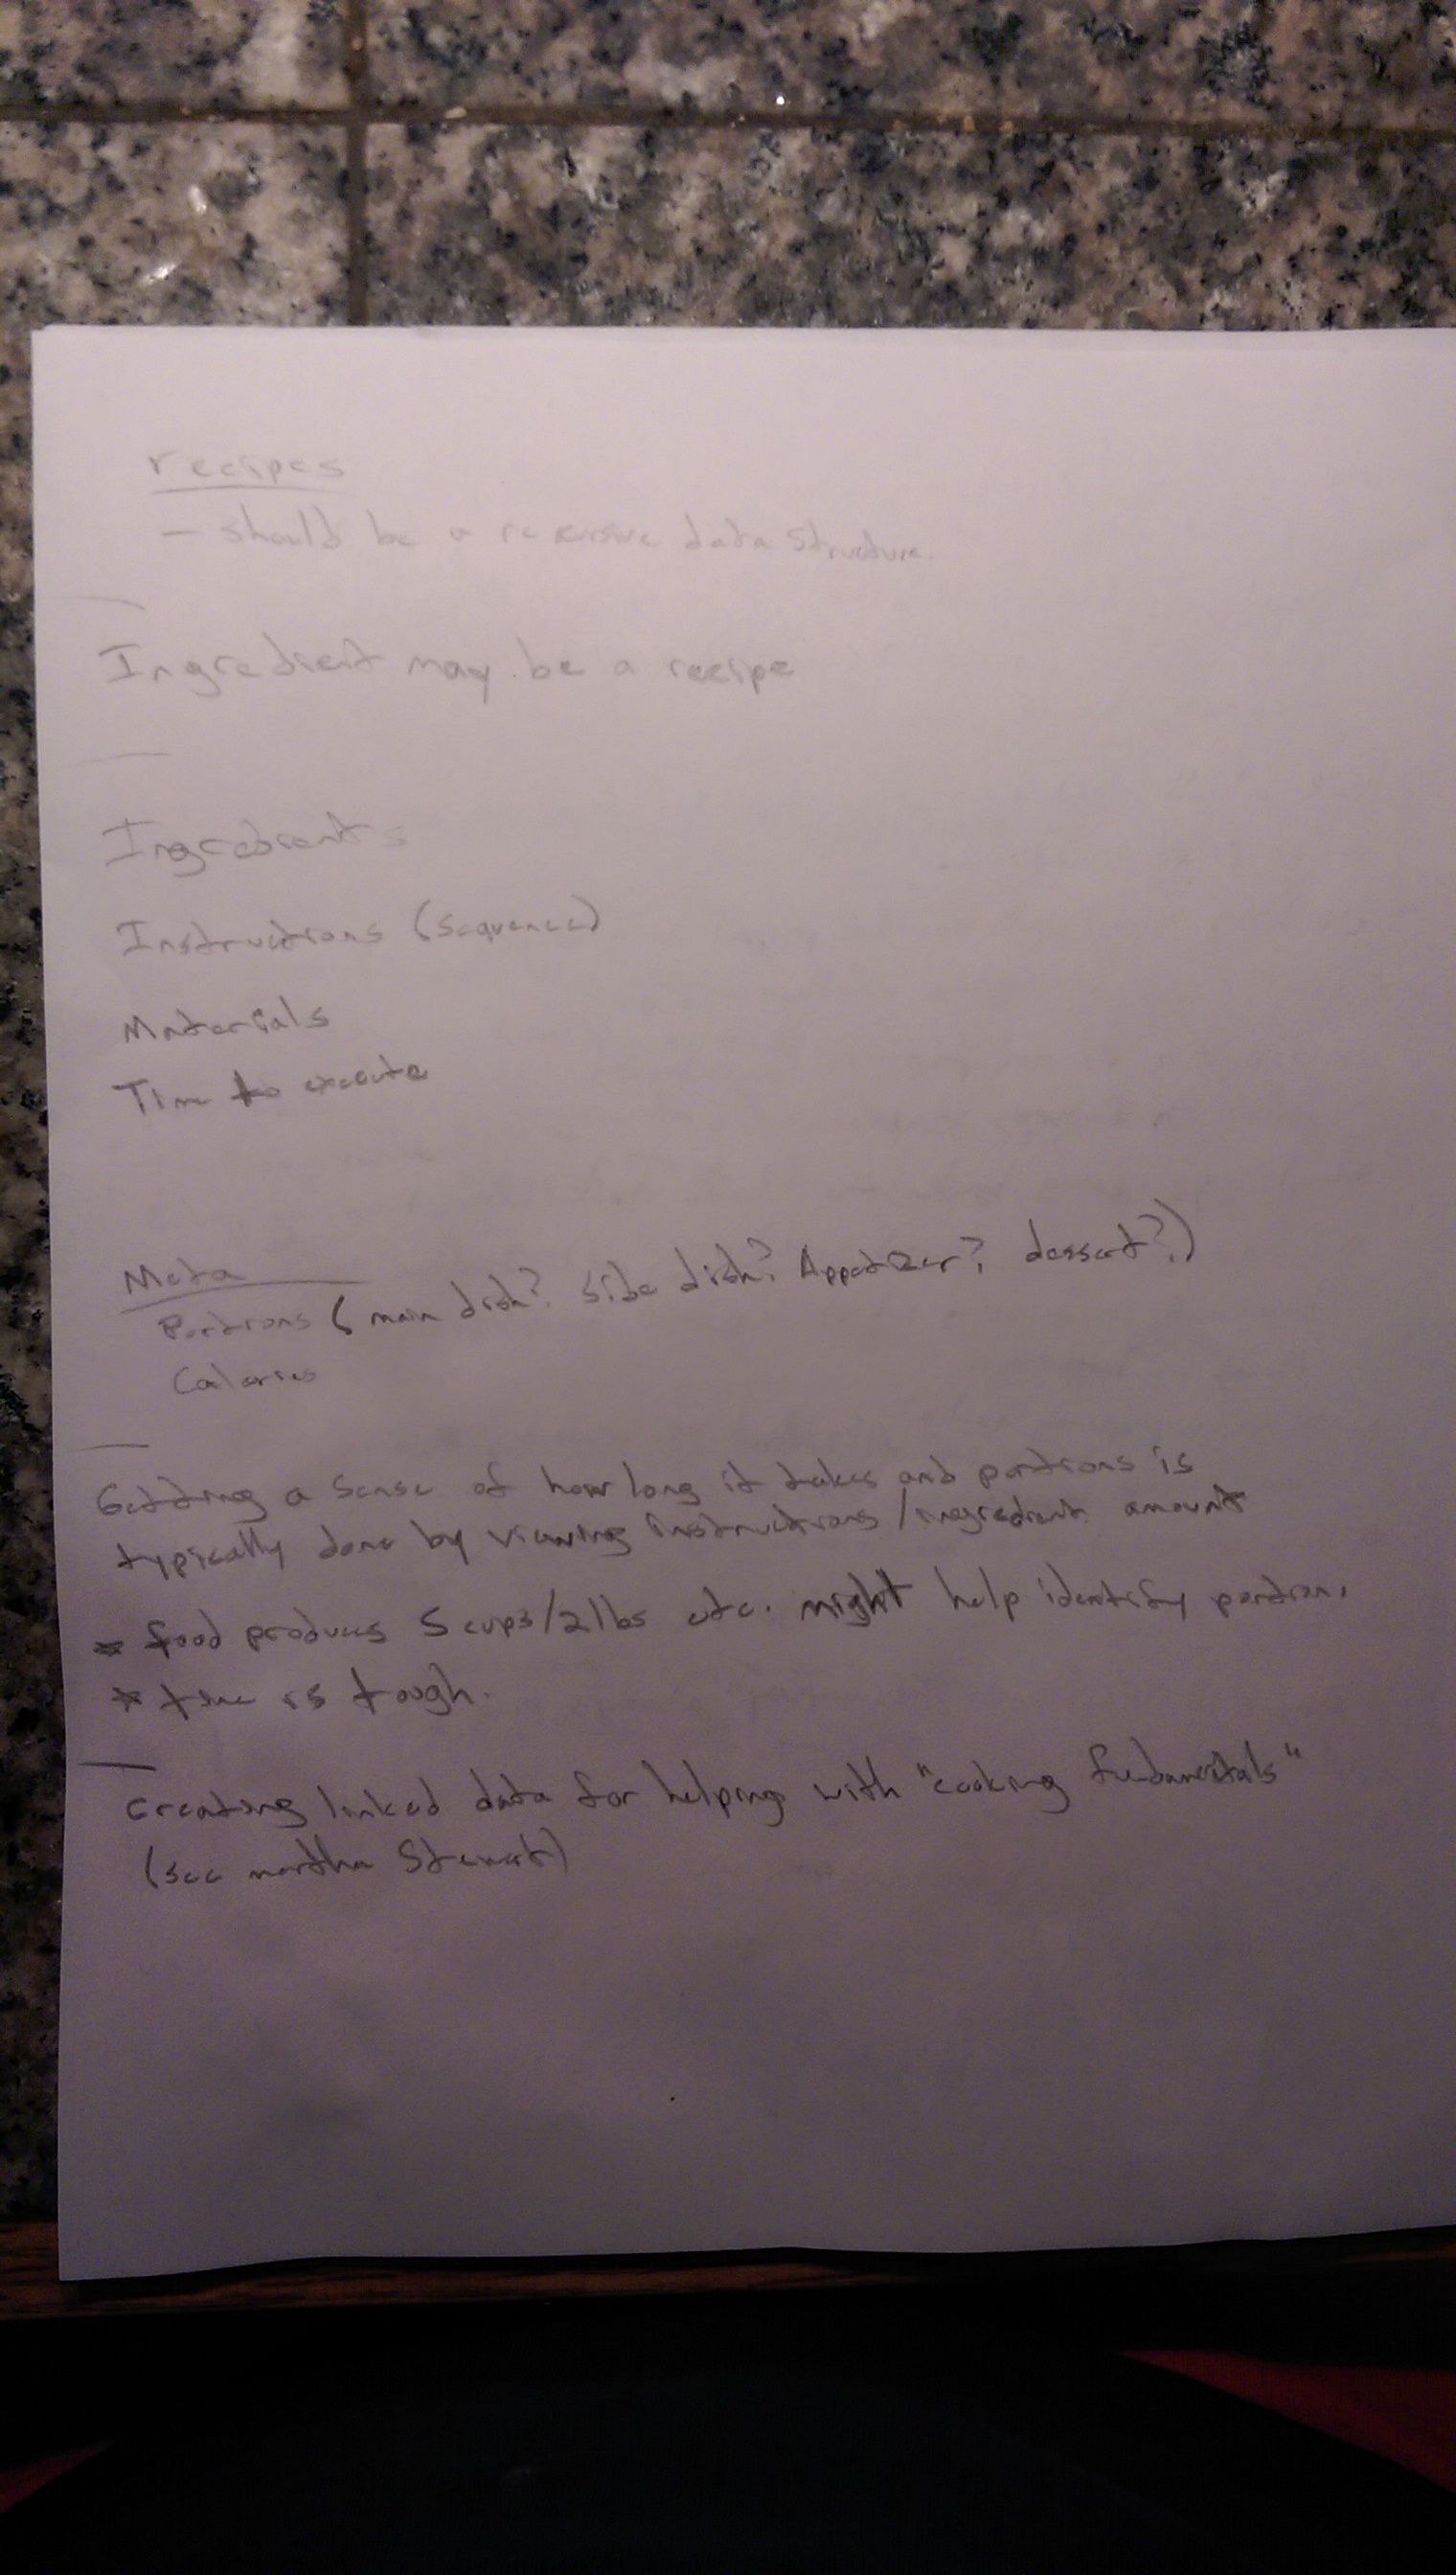 recipes
- should be a recursive data structure.
Ingredient may be a recipe
Ingredients
Instructions (sequence)
Materials
Time to execute
Meta
Portions (main dish? side dish? Appetizer? dessert?)
Calories
Getting a sense of how long it takes and portions is
typically done by viewing instructions/ingredient amount
* food produces 5 cups/2lbs etc. might help identify portion.
* time is tough.
creating linked data for helping with "cooking fundamentals"
(see martha Stewart)